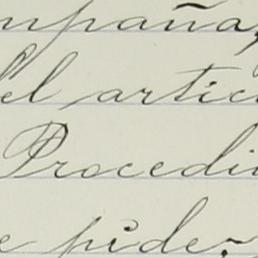 mpaña,
el artic
Procedi
e pide: